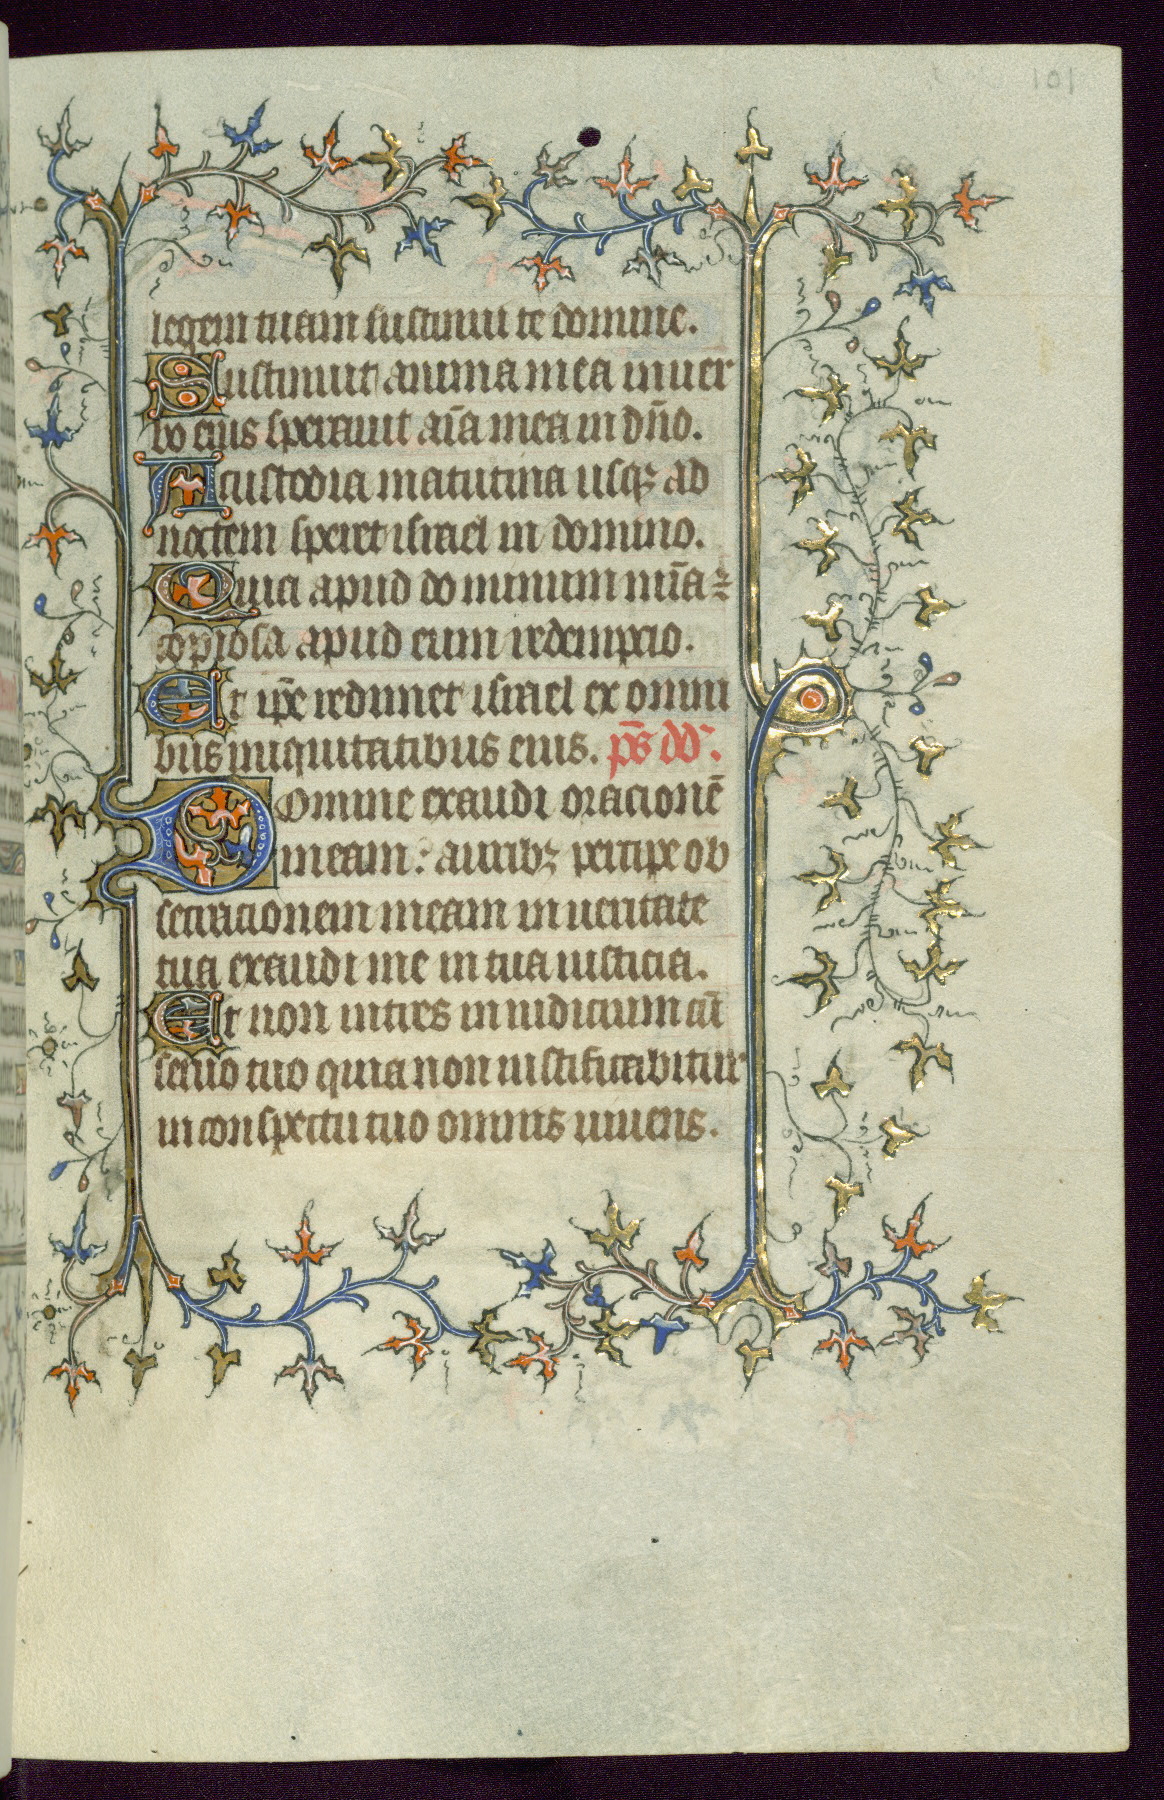 101
legem tuam sustinui te domine.
Sustinuit anima mea in uer
bo eius sperauit aīa mea in dn̄o.
A custodia matutina usqꝫ ad
noctem speret israel in domino.
Quia apud dominum mīa ⁊
copiosa apud eum redempcio.
Et ip̄e redimet israel ex omni
bus iniquitatibus eius. p̄s dd'.
Domine exaudi oracionē
meam: auribꝫ percipe ob
secracionem meam in ueritate
tua exaudi me in tua iusticia.
Et non intres in iudicium cū
seruo tuo quia non iustificabitur
in conspectu tuo omnis uiuens.